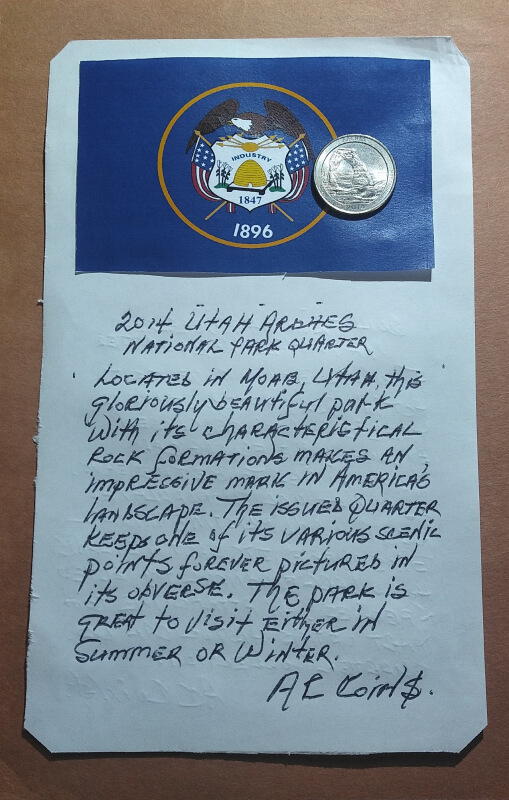 INDUSTRY
1847
1896
2014 UTAH ARCHES
NATIONAL PARK QUARTER
LOCATED IN MOAB, UTAH, this
gloriously beautiful park
with its characteristical
rock formations makes an
impressive mark in America's
landscape. The issued Quarter
keeps one of its various scenic
points forever pictured in
its obverse. The park is
great to visit either in
Summer or Winter.
AL Coin$.